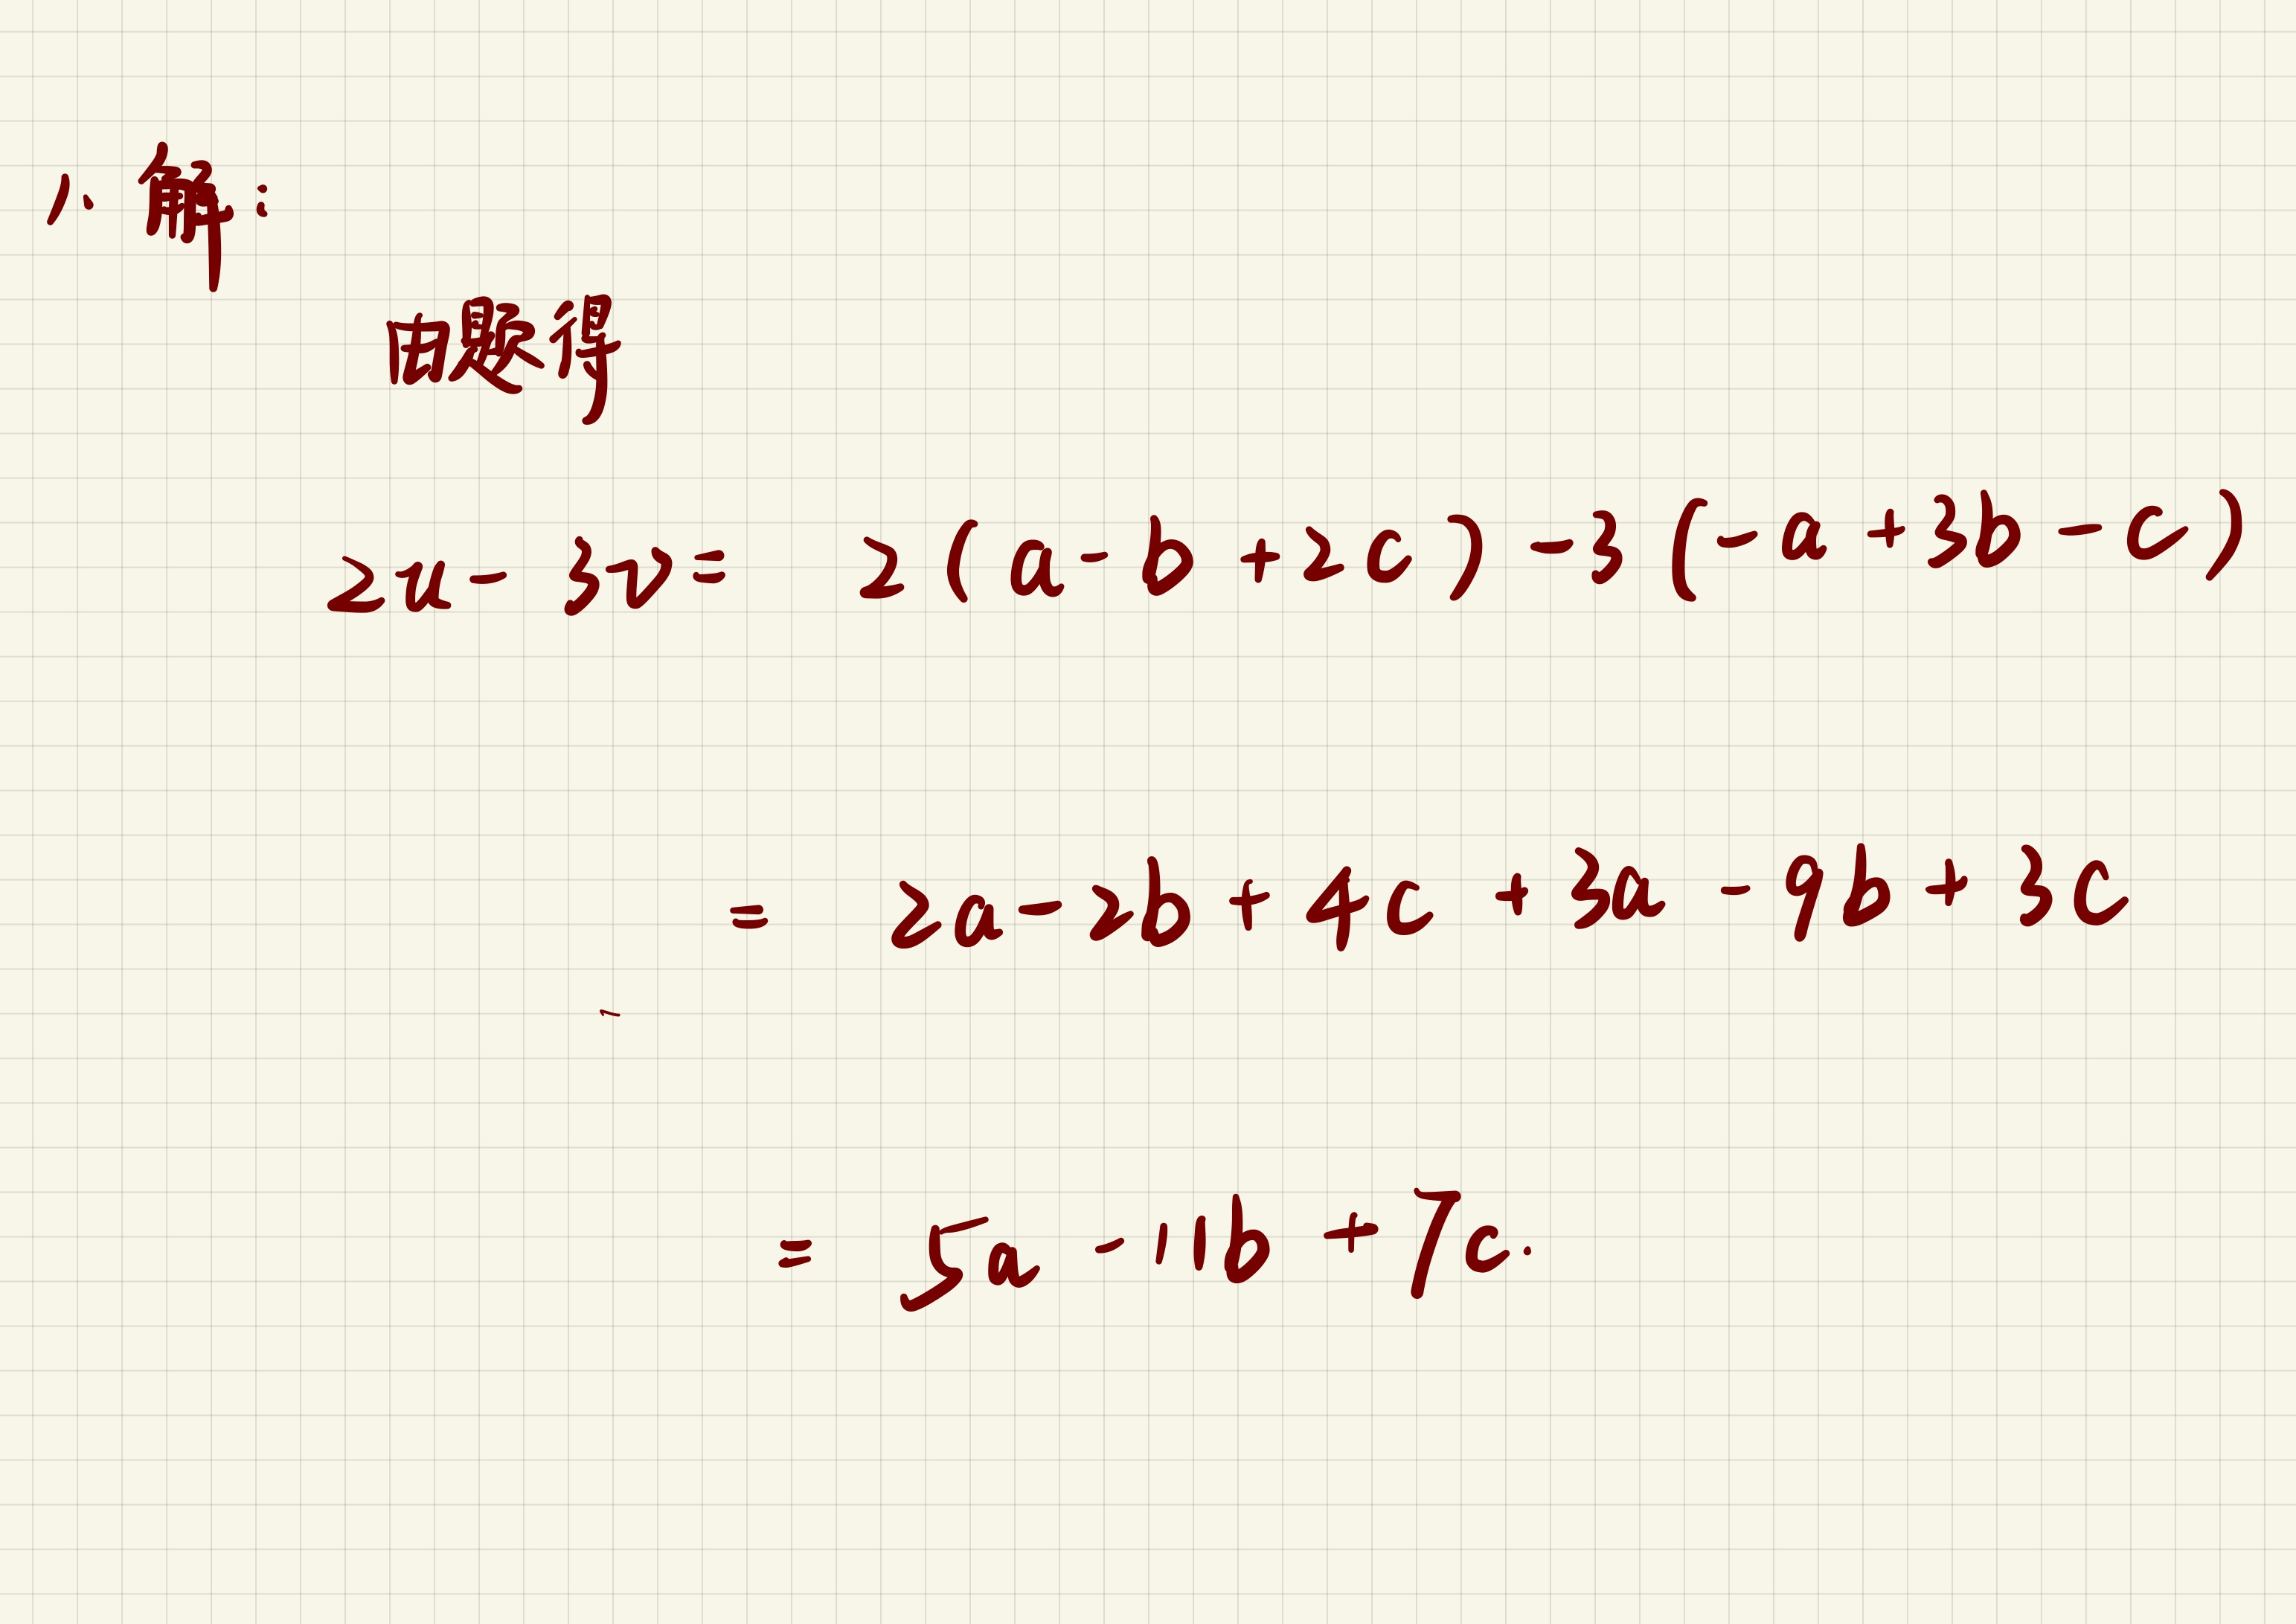 1. 解：
由题得
2u - 3v = 2(a - b + 2c) - 3(-a + 3b - c)
= 2a - 2b + 4c + 3a - 9b + 3c
= 5a - 11b + 7c.